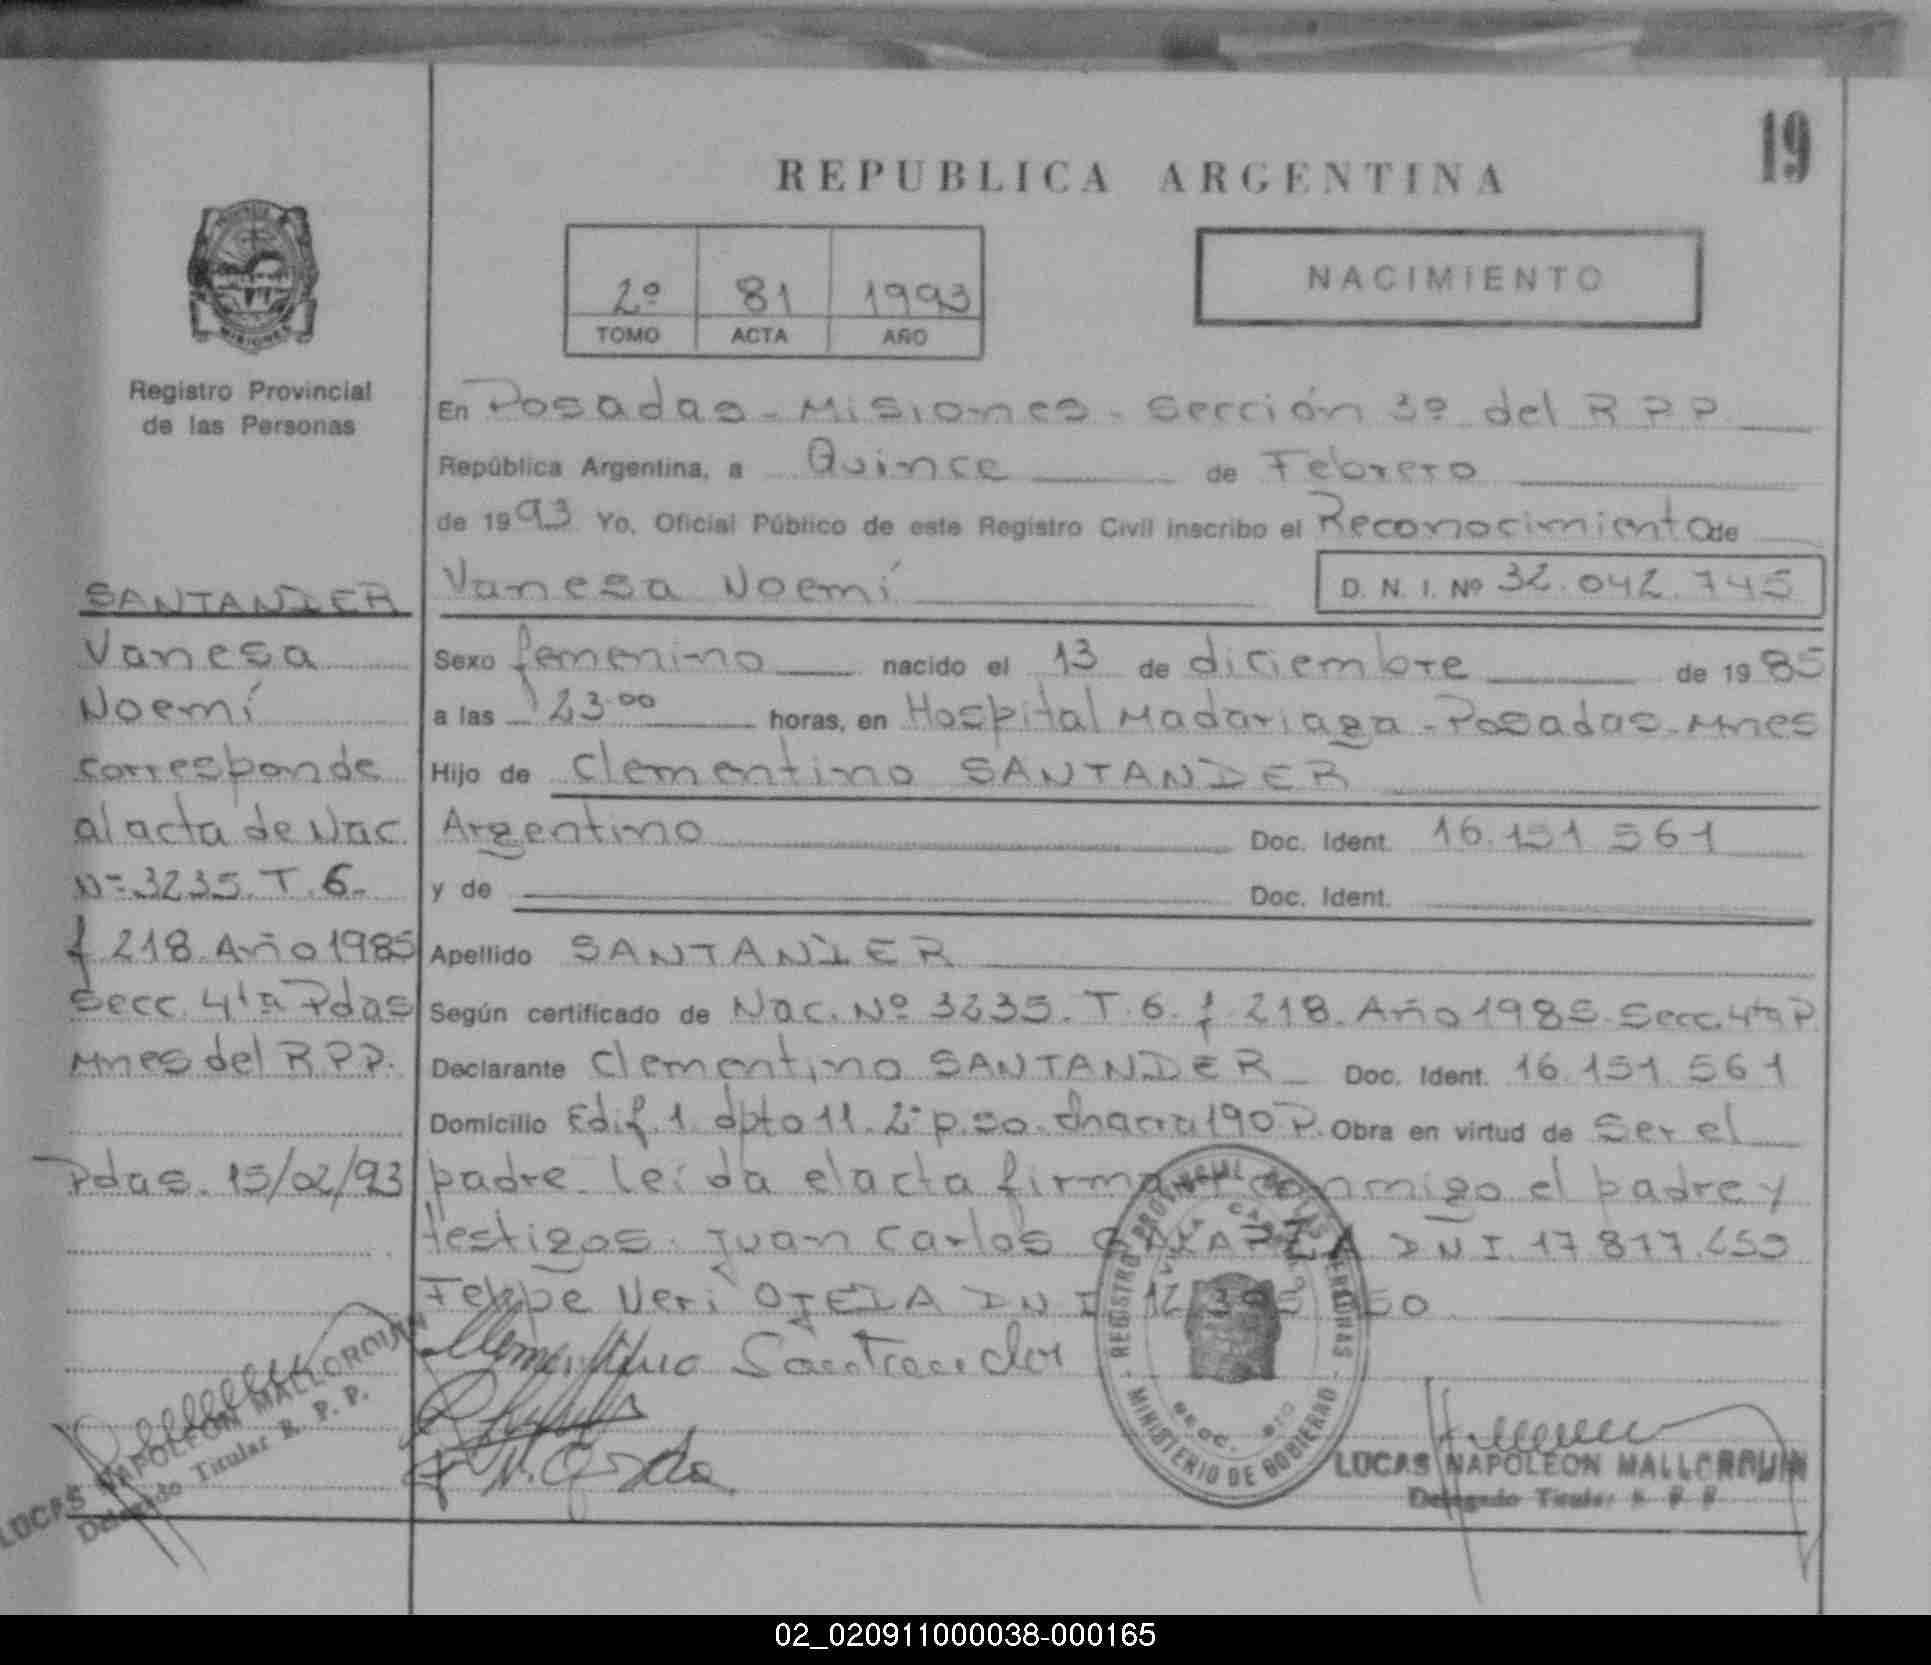 19
REPUBLICA ARGENTINA
2º 81 1993
TOMO ACTA AÑO
NACIMIENTO
MISIONES
Registro Provincial
de las Personas
SANTANDER
Vanesa
Noemí
corresponde
al acta de Nac.
Nº 3235. T. 6.
f 218. Año 1985
Secc. 4ta Pdas
Mnes del R.P.P.
Pdas. 15/02/93
LUCAS NAPOLEON MALLORQUIN
Delegado Titular R. P. P.
En Posadas - Misiones - Sección 3º del R.P.P.
República Argentina, a Quince de Febrero
de 1993 Yo, Oficial Público de este Registro Civil inscribo el Reconocimiento de
Vanesa Noemí D. N. I. Nº 32.042.745
Sexo femenino nacido el 13 de diciembre de 1985
a las 23.00 horas, en Hospital Madariaga - Posadas - Mnes
Hijo de Clementino SANTANDER
Argentino Doc. Ident. 16.151.561
y de Doc. Ident.
Apellido SANTANDER
Según certificado de Nac. Nº 3235. T. 6. f 218. Año 1985. Secc. 4ta P.
Declarante Clementino SANTANDER Doc. Ident. 16.151.561
Domicilio Edif. 1. dpto 11. 2º piso. chacra 190 P. Obra en virtud de Ser el
padre. leída el acta firman conmigo el padre y
testigos. Juan Carlos DNI 17.817.
Felipe Neri OJEDA DNI
Clementino Santander
REGISTRO PROVINCIAL DE LAS PERSONAS
MINISTERIO DE GOBIERNO
LUCAS NAPOLEON MALLORQUIN
Delegado Titular R P P
02_020911000038-000165